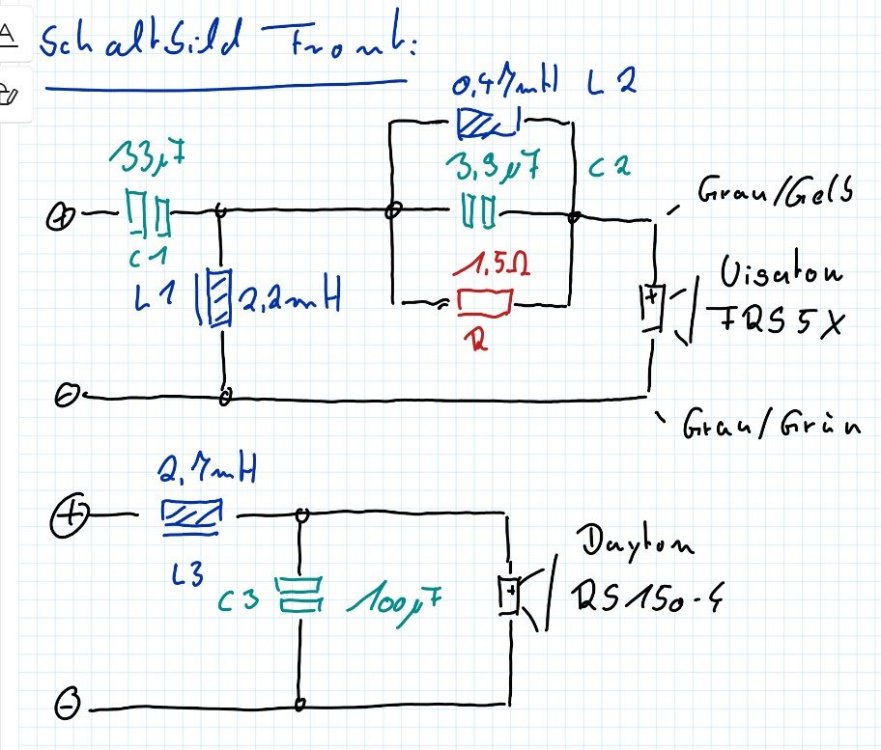 Schaltbild Front:
0,47mH L2
33µF
3,9µF C2
Grau/Gelb
C1
1,5Ω
L1 2,2mH
R
Visaton
FRS 5 X
Grau/Grün
2,7mH
L3
Dayton
C3 100µF
RS 150-4